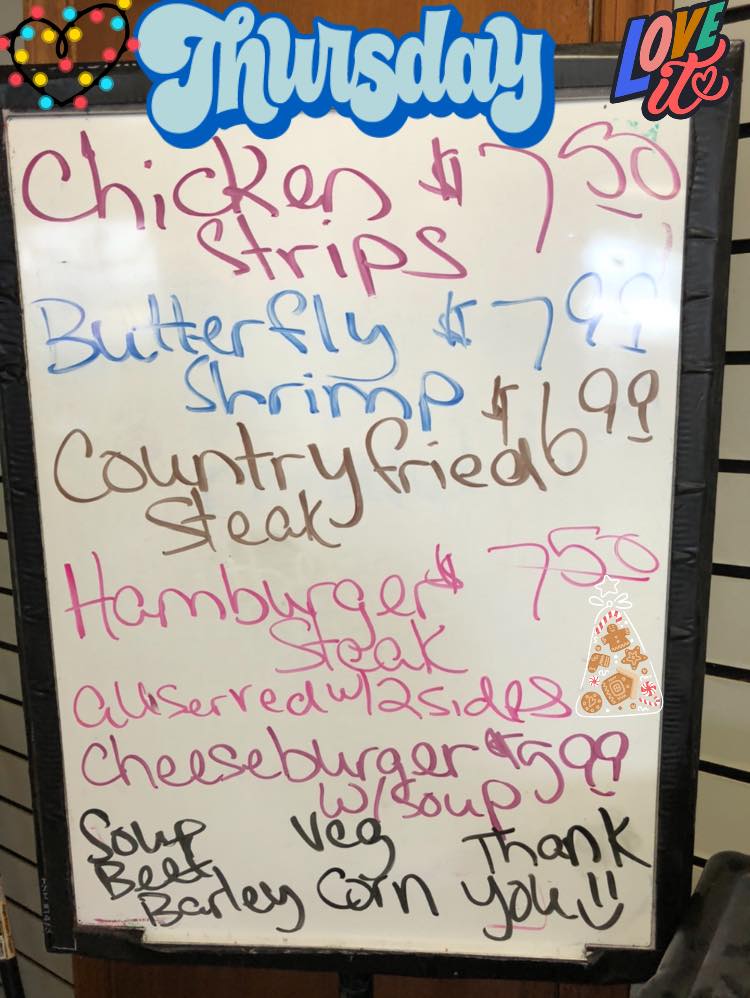 Thursday
LOVE
it
Chicken $7 50
Strips
Butterfly $7 99
Shrimp
Country fried $6 99
Steak
Hamburger $ 7 50
Steak
all served w/2 sides
Cheeseburger $5 99
w/soup
Soup Veg Thank
Beef
Barley Corn you!!